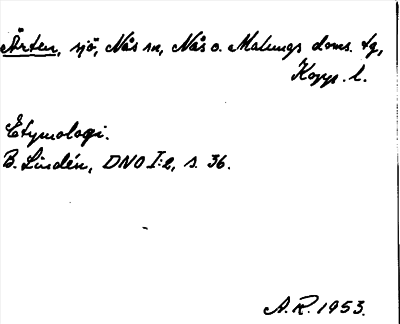 Årten, sjö, Nås sn, Nås o. Malungs doms. tg,
Kopp. l.
Etymologi.
B. Lindén, DNO I:2, s. 36.
A.R. 1953.